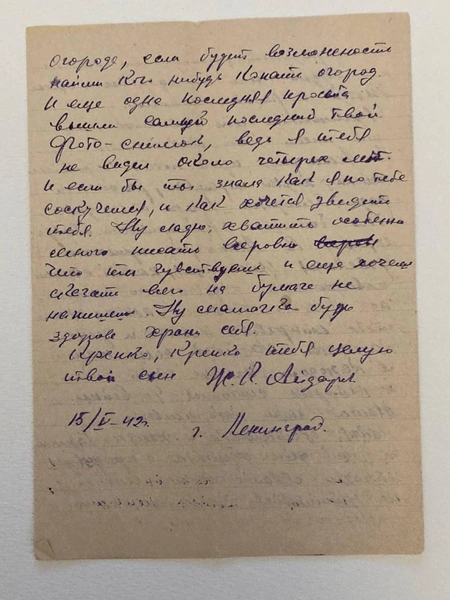 огороде, если будет возможность
найми кто нибудь копать огород.
И еще одна последняя просьба
вышли самый последний твой
Фото-снимок, ведь я тебя
не видел около четырех лет.
И если бы ты знала как я по тебе
соскучился, и как хочется увидеть
тебя. Ну ладно, хватить особенно
много писать всеровно
что ты чувствуешь и еще хочеш
сказать всего на бумаге не
напишеш Ну мамочка будь
здорова храни себя.
Крепко, Крепко тебя целую
твой сын
15/V-42г.
г. Ленинград.